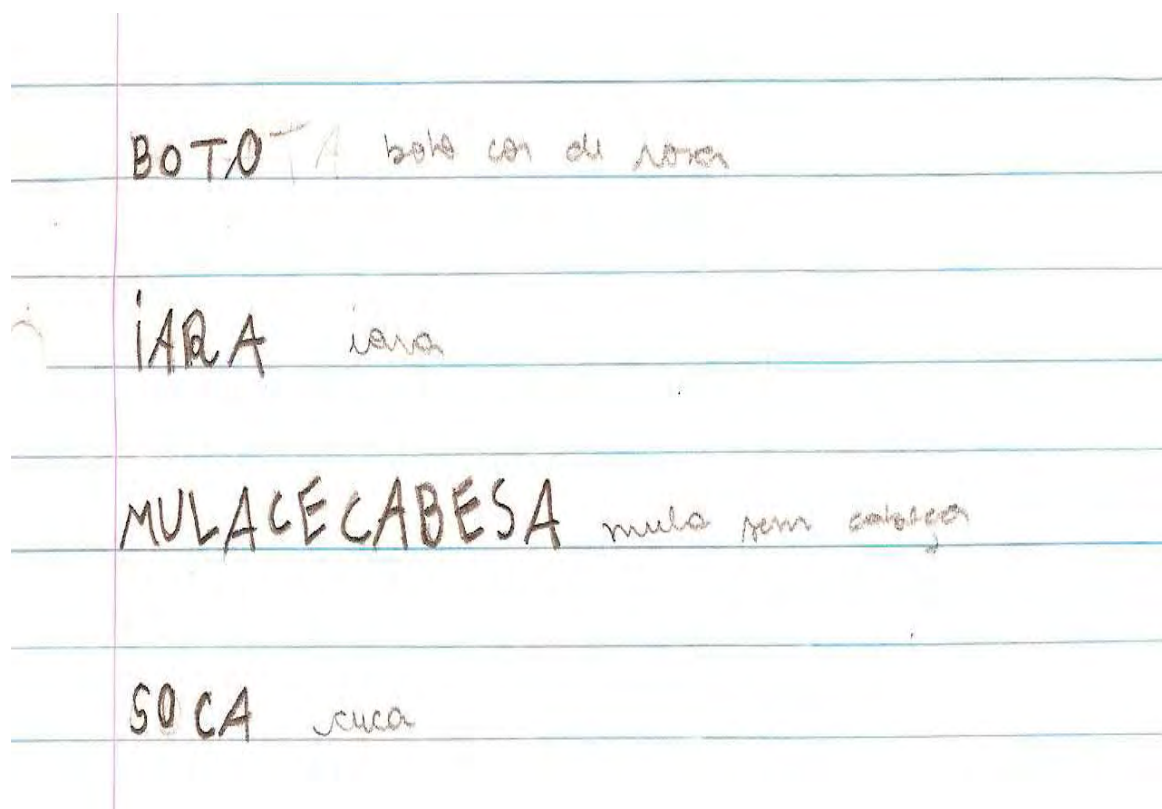 BOTO TA boto cor de rosa
IARA iara
MULACECABESA mula sem cabeça
SOCA cuca